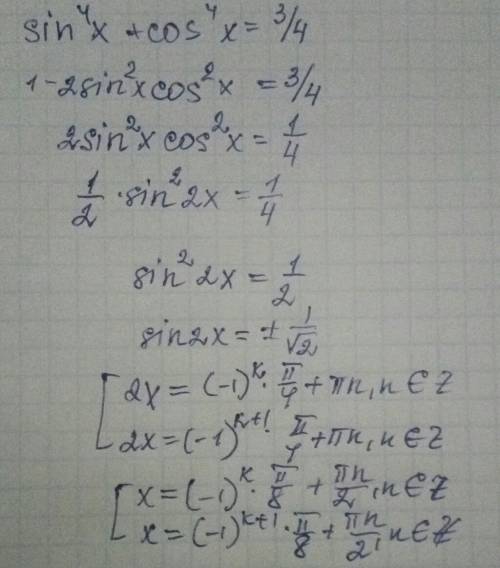 sin⁴x + cos⁴x = 3/4
1 - 2sin²x cos²x = 3/4
2sin²x cos²x = 1/4
1/2 · sin²2x = 1/4
sin²2x = 1/2
sin2x = ± 1/√2
[ 2x = (-1)^k · π/4 + πn, n ∈ Z
2x = (-1)^(k+1) · π/4 + πn, n ∈ Z
[ x = (-1)^k · π/8 + πn/2, n ∈ Z
x = (-1)^(k+1) · π/8 + πn/2, n ∈ Z